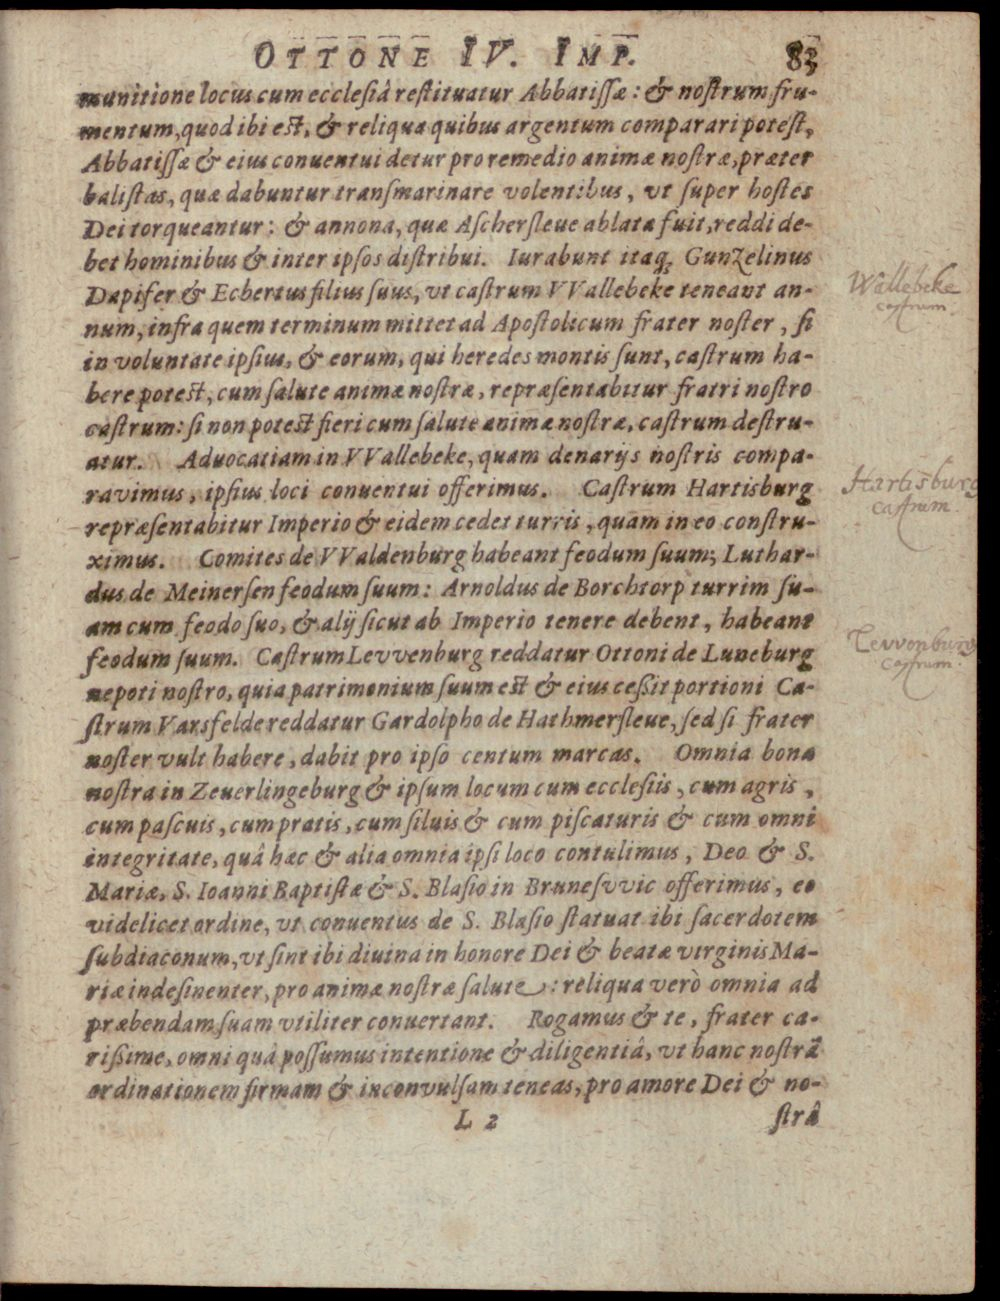 OTTONE IV. IMP. 83
munitione locus cum ecclesiâ restituatur Abbatissæ: & nostrum fru-
mentum, quod ibi est, & reliqua quibus argentum comparari potest,
Abbatissæ & eius conuentui detur pro remedio animæ nostræ, præter
balistas, quæ dabuntur transmarinare volentibus, vt super hostes
Dei torqueantur: & annona, quæ Aschersleue ablata fuit, reddi de-
bet hominibus & inter ipsos distribui. Iurabunt itaq; Gunzelinus
Dapifer & Ecbertus filius suus, vt castrum VVallebeke teneant an-
num, infra quem terminum mittet ad Apostolicum frater noster, si
in voluntate ipsius, & eorum, qui heredes montis sunt, castrum ha-
bere potest, cum salute animæ nostræ, repræsentabitur fratri nostro
castrum: si non potest fieri cum salute animæ nostræ, castrum destru-
atur. Aduocatiam in VVallebeke, quam denarijs nostris compa-
ravimus, ipsius loci conuentui offerimus. Castrum Hartisburg
repræsentabitur Imperio & eidem cedet turris, quam in eo constru-
ximus. Comites de VValdenburg habeant feodum suum; Luthar-
dus de Meinersen feodum suum: Arnoldus de Borchtorp turrim su-
am cum feodo suo, & alij sicut ab Imperio tenere debent, habeant
feodum suum. Castrum Levvenburg reddatur Ottoni de Luneburg
nepoti nostro, quia patrimonium suum est & eius ceßit portioni Ca-
strum Varsfelde reddatur Gardolpho de Hathmersleue, sed si frater
noster vult habere, dabit pro ipso centum marcas. Omnia bona
nostra in Zeuerlingeburg & ipsum locum cum ecclesiis, cum agris,
cum pascuis, cum pratis, cum siluis & cum piscaturis & cum omni
integritate, quâ hæc & alia omnia ipsi loco contulimus, Deo & S.
Mariæ, S. Ioanni Baptistæ & S. Blasio in Brunesvvic offerimus, eo
videlicet ordine, vt conuentus de S. Blasio statuat ibi sacerdotem
subdiaconum, vt sint ibi diuina in honore Dei & beatæ virginis Ma-
riæ indesinenter, pro animæ nostræ salute: reliqua verò omnia ad
præbendam suam vtiliter conuertant. Rogamus & te, frater ca-
rißime, omni quâ possumus intentione & diligentiâ, vt hanc nostrã
ordinationem firmam & inconvulsam teneas, pro amore Dei & no-
L 2 strâ
Wallebeke
castrum.
Hartisburg
castrum.
Levvonburg
castrum.